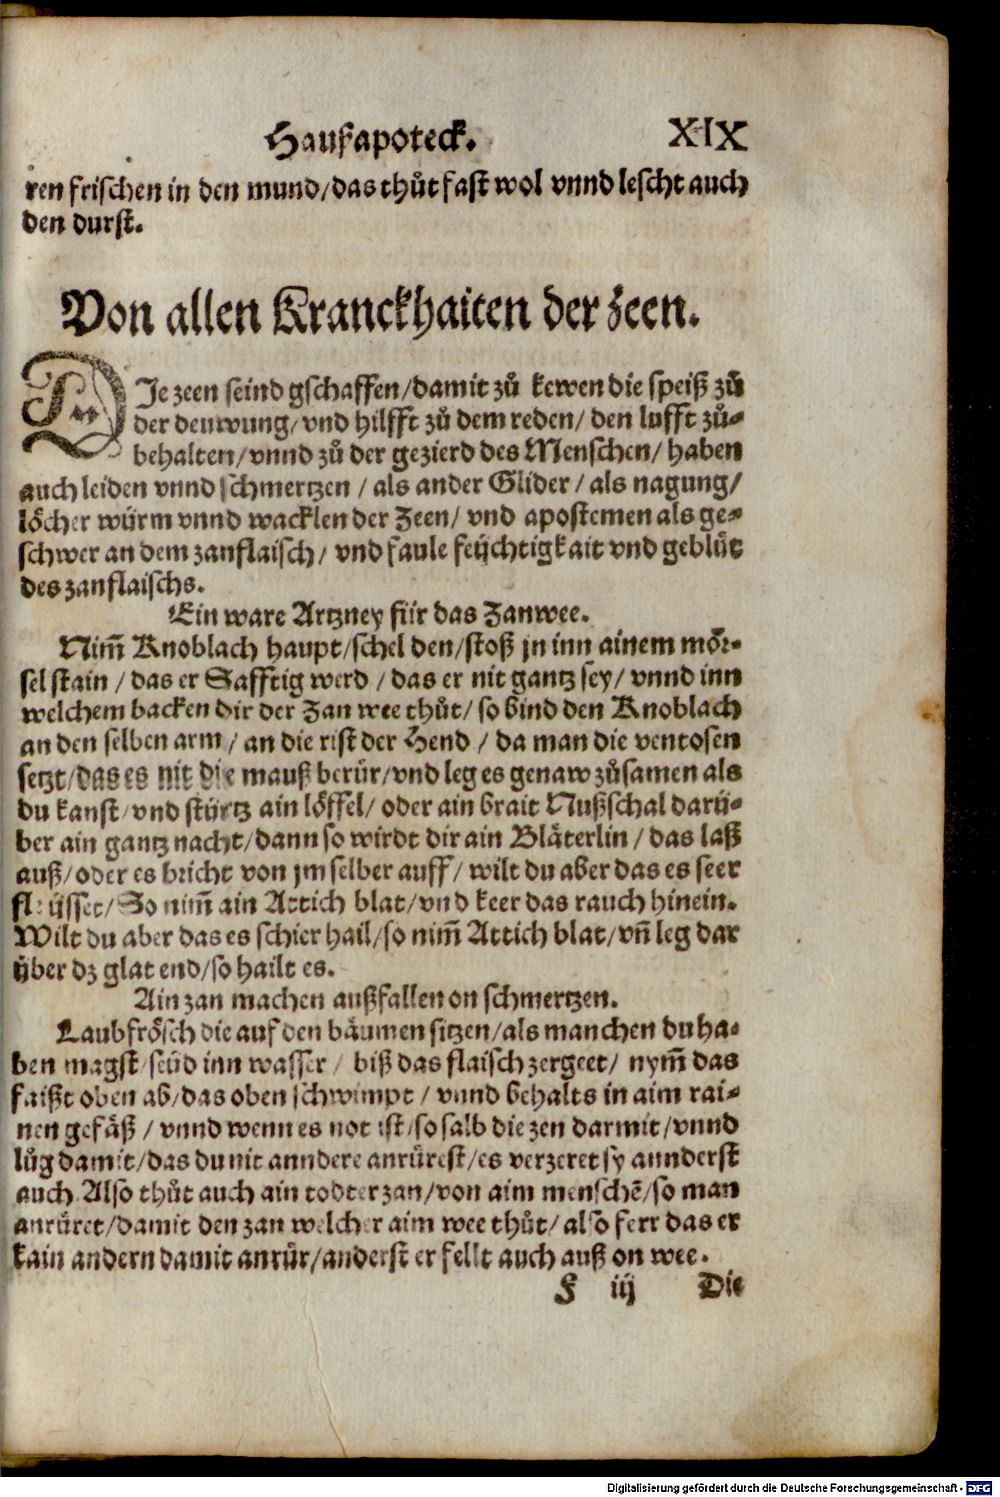 Haußapoteck. XIX
ren frischen in den mund/das thůt fast wol vnnd lescht auch
den durst.
Von allen Kranckhaiten der zeen.
DIe zeen seind gschaffen/damit zů kewen die speiß zů
der deuwung/vnd hilfft zů dem reden/den lufft zů-
behalten/vnnd zů der gezierd des Menschen/haben
auch leiden vnnd schmertzen/als ander Glider/als nagung/
lőcher würm vnnd wacklen der Zeen/vnd apostemen als ge-
schwer an dem zanflaisch/vnd faule feüchtigkait vnd geblüt
des zanflaischs.
Ein ware Artzney für das Zanwee.
Nim̃ Knoblach haupt/schel den/stoß jn inn ainem mőr-
sel stain/das er Safftig werd/das er nit gantz sey/vnnd inn
welchem backen dir der Zan wee thůt/so bind den Knoblach
an den selben arm/an die rist der Hend/da man die ventosen
setzt/das es nit die mauß berür/vnd leg es genaw zůsamen als
du kanst/vnd stürtz ain lőffel/oder ain brait Nußschal darü-
ber ain gantz nacht/dann so wirdt dir ain Bläterlin/das laß
auß/oder es bricht von jm selber auff/wilt du aber das es seer
flüsset/So nim̃ ain Attich blat/vnd keer das rauch hinein.
Wilt du aber das es schier hail/so nim̃ Attich blat/vñ leg dar
über dz glat end/so hailt es.
Ain zan machen außfallen on schmertzen.
Laubfrősch die auf den bäumen sitzen/als manchen du ha-
ben magst/seüd inn wasser/biß das flaisch zergeet/nym̃ das
faißt oben ab/das oben schwimpt/vnnd behalts in aim rai-
nen gefäß/vnnd wenn es not ist/so salb die zen darmit/vnnd
lůg damit/das du nit anndere anrürest/es verzeret sy annderst
auch. Also thůt auch ain todter zan/von aim menschẽ/so man
anrüret/damit den zan welcher aim wee thůt/also ferr das er
kain andern damit anrür/anderst er fellt auch auß on wee.
F iij Die
Digitalisierung gefördert durch die Deutsche Forschungsgemeinschaft - DFG